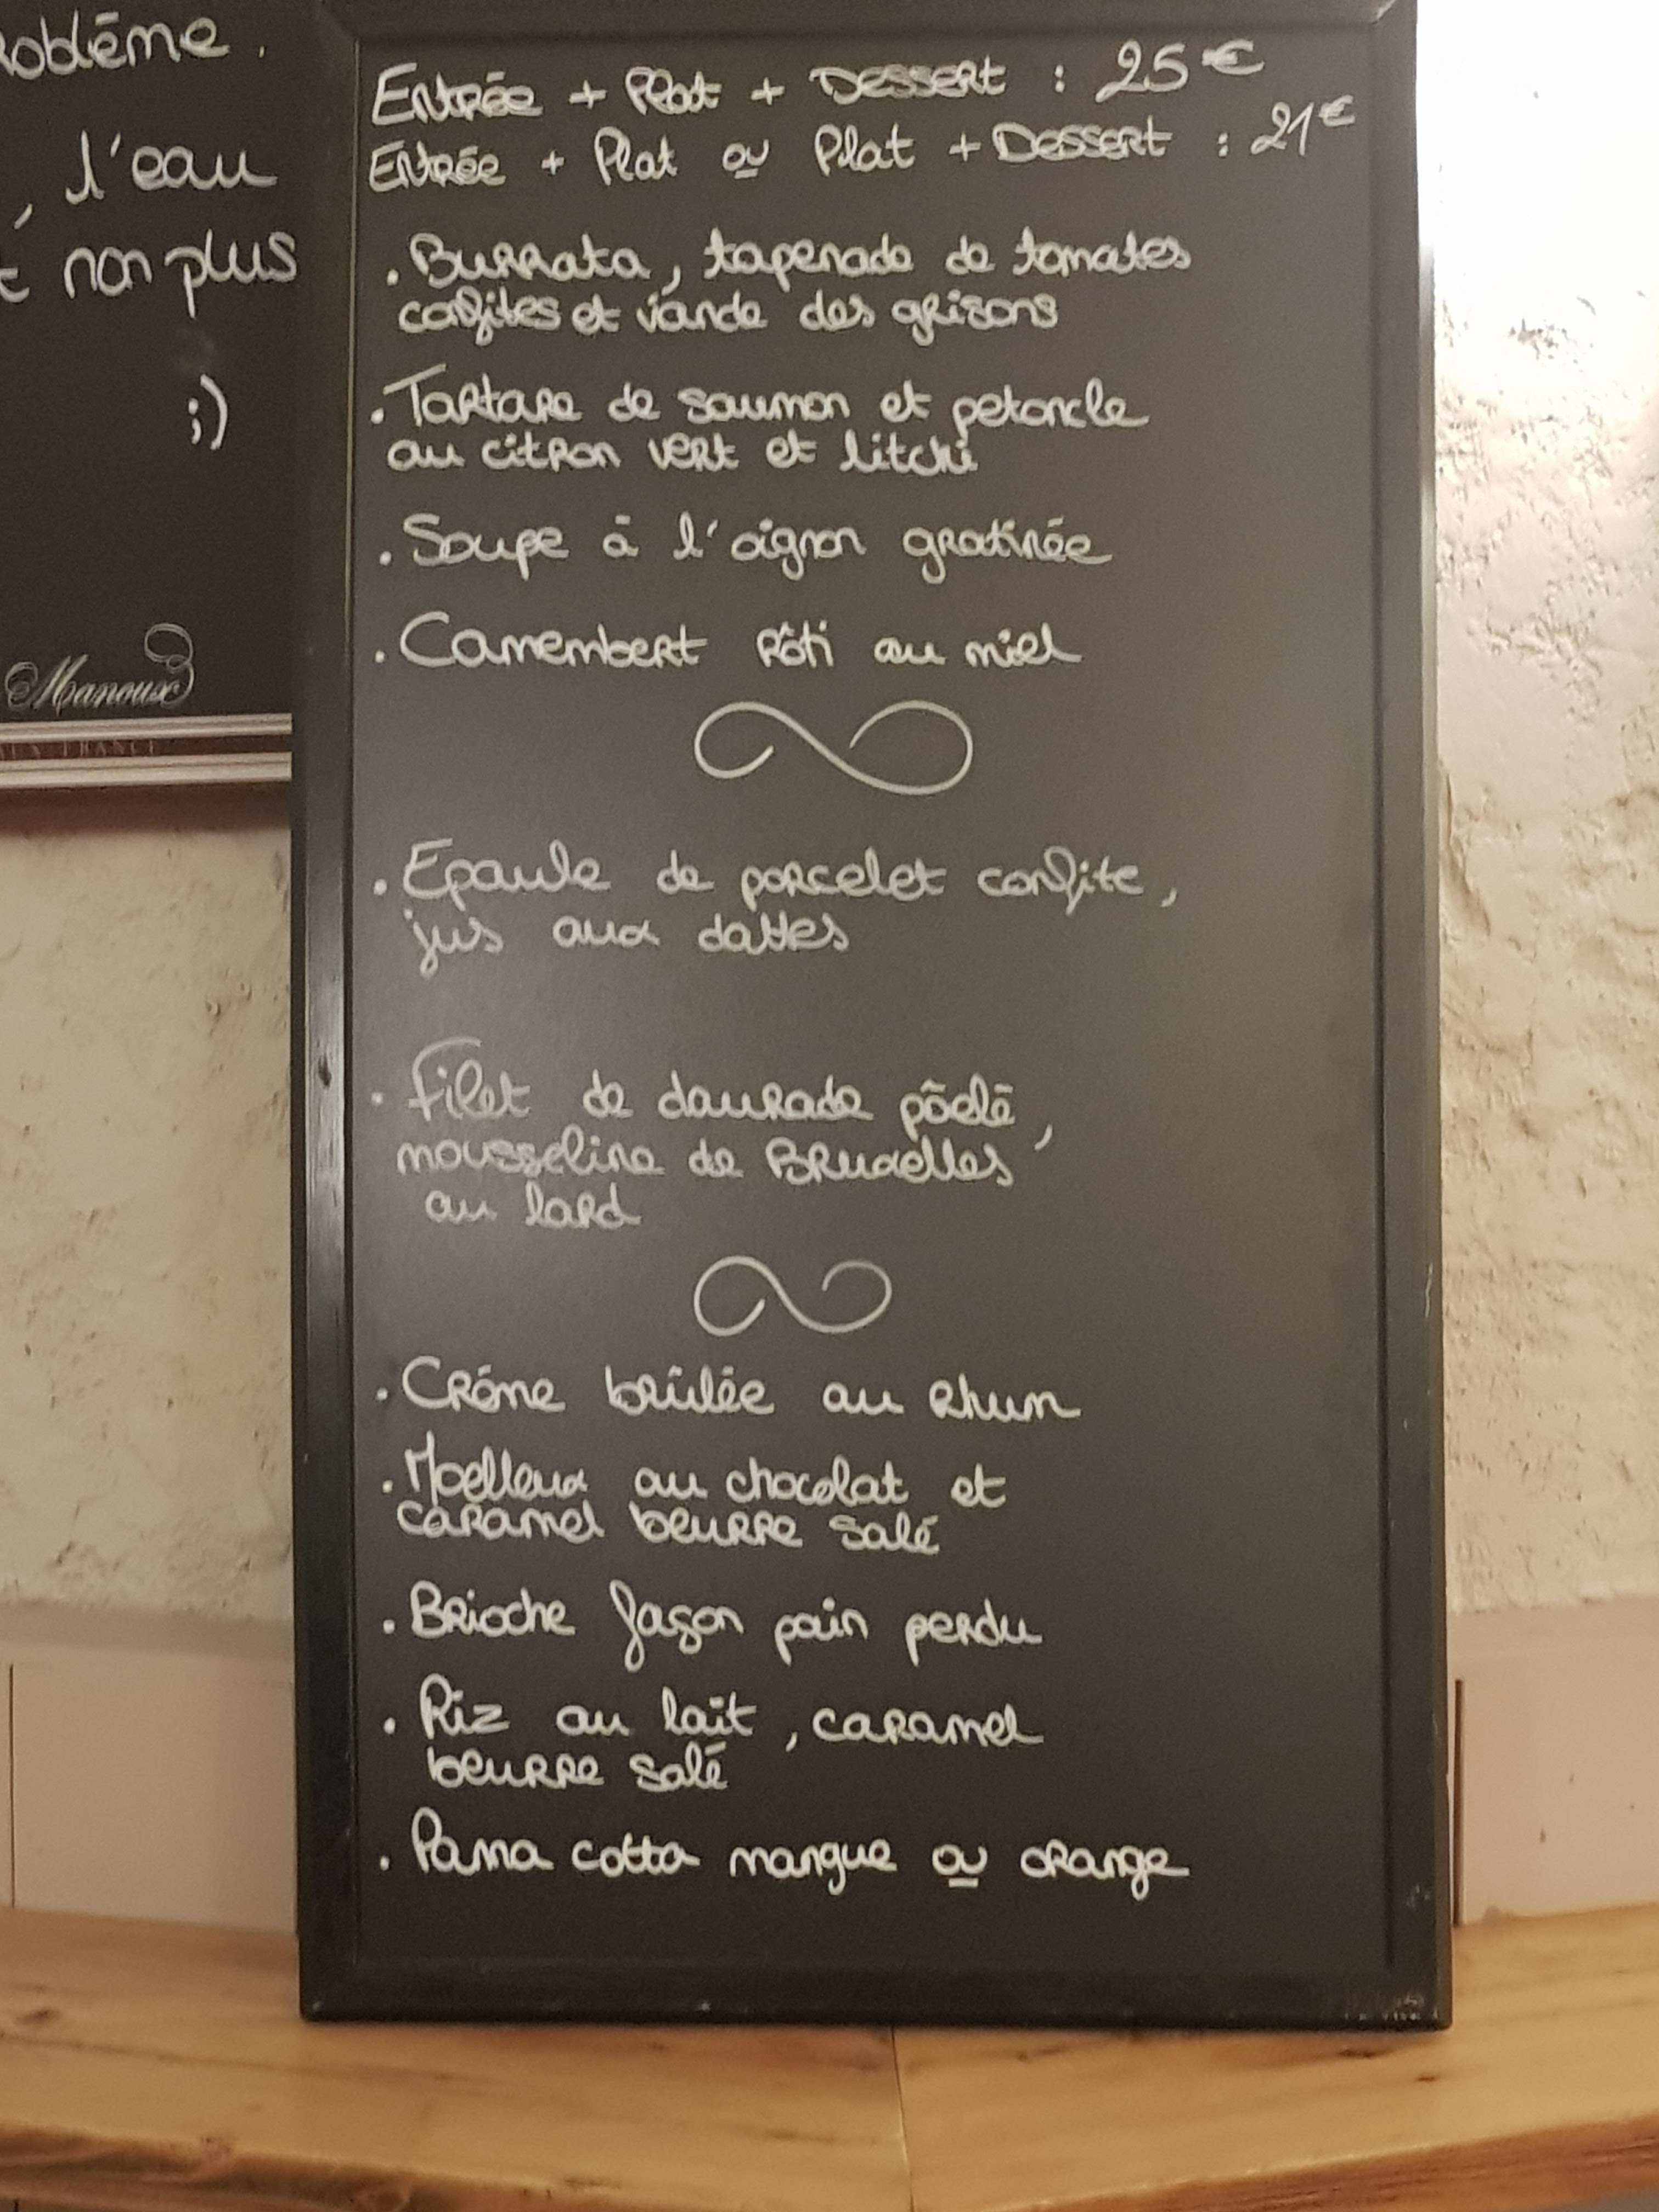 problème.
, l'eau
non plus
;)
Manoux
FRANCE
Entrée + Plat + Dessert : 25€
Entrée + Plat ou Plat + Dessert : 21€
. Burrata, tapenade de tomates
confites et viande des grisons
. Tartare de saumon et petoncle
au citron vert et litchi
. Soupe à l'oignon gratinée
. Camembert rôti au miel
. Epaule de porcelet confite,
jus aux dattes
. Filet de daurade pôelé,
mousseline de Bruxelles
au lard
. Crème brûlée au Rhum
. Moelleux au chocolat et
caramel beurre salé
. Brioche façon pain perdu
. Riz au lait, caramel
beurre salé
. Panna cotta mangue ou orange